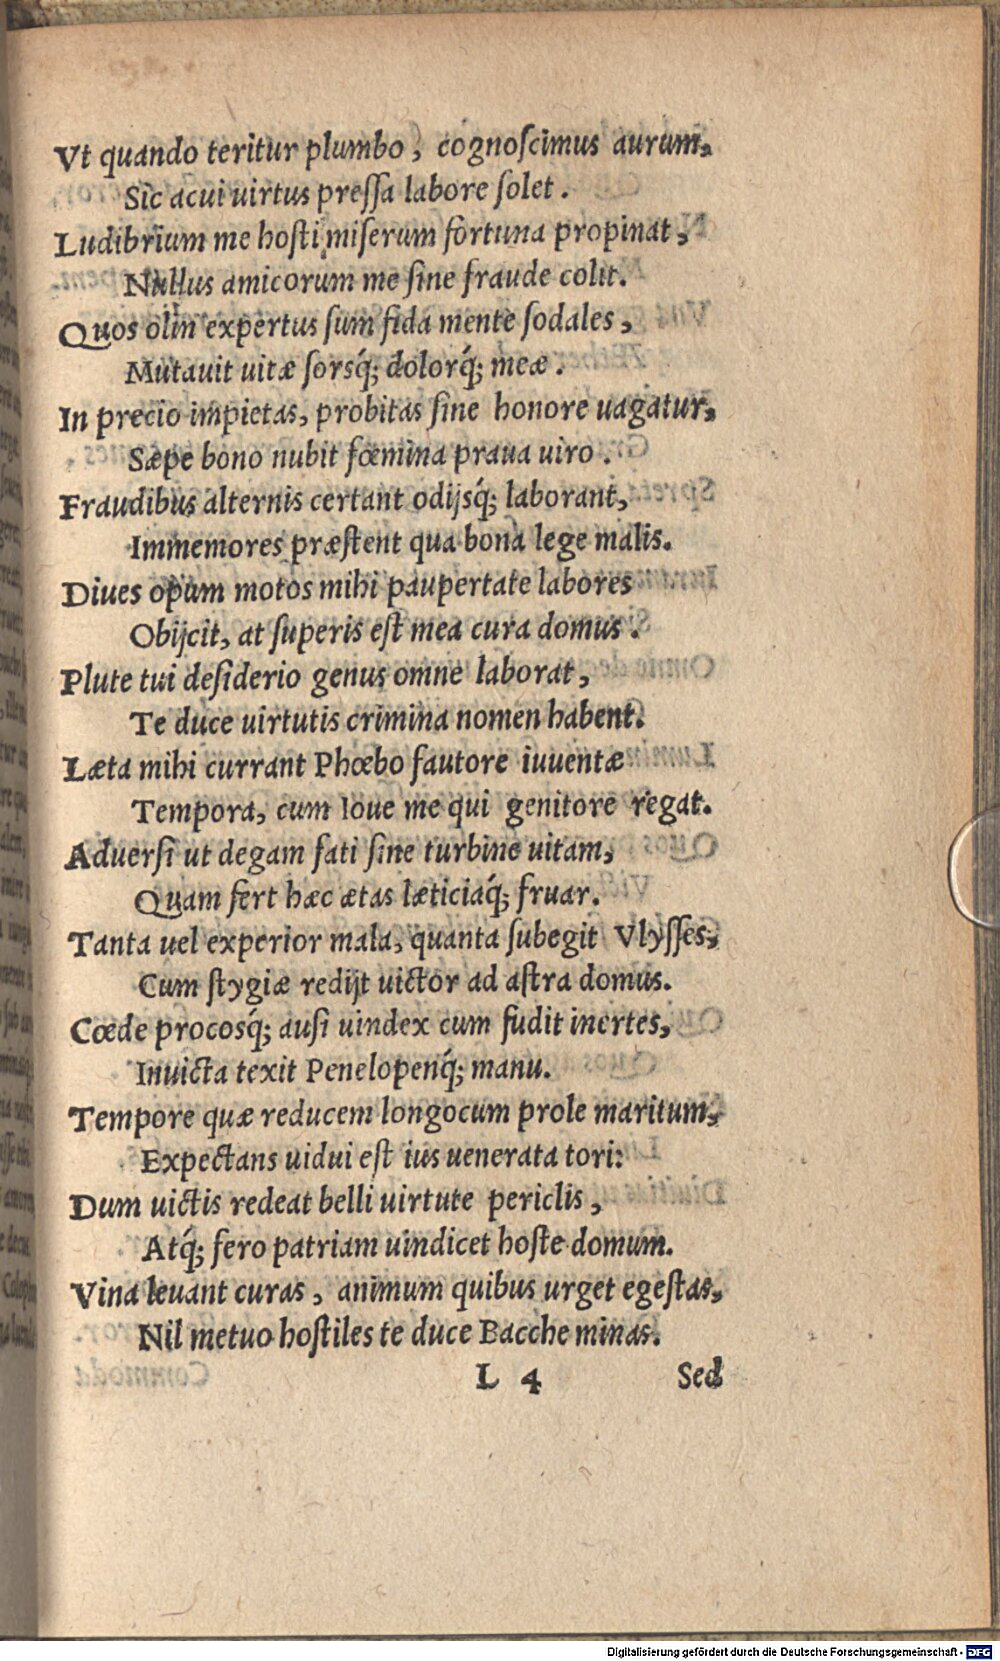 Vt quando teritur plumbo, cognoscimus aurum,
Sic acui uirtus pressa labore solet.
Ludibrium me hosti miserum fortuna propinat,
Nullus amicorum me sine fraude colit.
Quos olim expertus sum fida mente sodales,
Mutauit uitæ sorsq́; dolorq́; meæ.
In precio impietas, probitas sine honore uagatur,
Sæpe bono nubit fœmina praua uiro.
Fraudibus alternis certant odijsq́; laborant,
Immemores præstent qua bona lege malis.
Diues opum motos mihi paupertate labores
Obijcit, at superis est mea cura domus.
Plute tui desiderio genus omne laborat,
Te duce uirtutis crimina nomen habent.
Læta mihi currant Phœbo fautore iuuentæ
Tempora, cum Ioue me qui genitore regat.
Aduersi ut degam fati sine turbine uitam,
Quam fert hæc ætas læticiaq́; fruar.
Tanta uel experior mala, quanta subegit Vlysses,
Cum stygiæ redijt uictor ad astra domus.
Cœde procosq́; ausi uindex cum fudit inertes,
Inuicta texit Penelopenq́; manu.
Tempore quæ reducem longo cum prole maritum,
Expectans uidui est ius uenerata tori:
Dum uictis redeat belli uirtute periclis,
Atq́; fero patriam uindicet hoste domum.
Vina leuant curas, animum quibus urget egestas,
Nil metuo hostiles te duce Bacche minas.
L 4 Sed
Digitalisierung gefördert durch die Deutsche Forschungsgemeinschaft - DFG